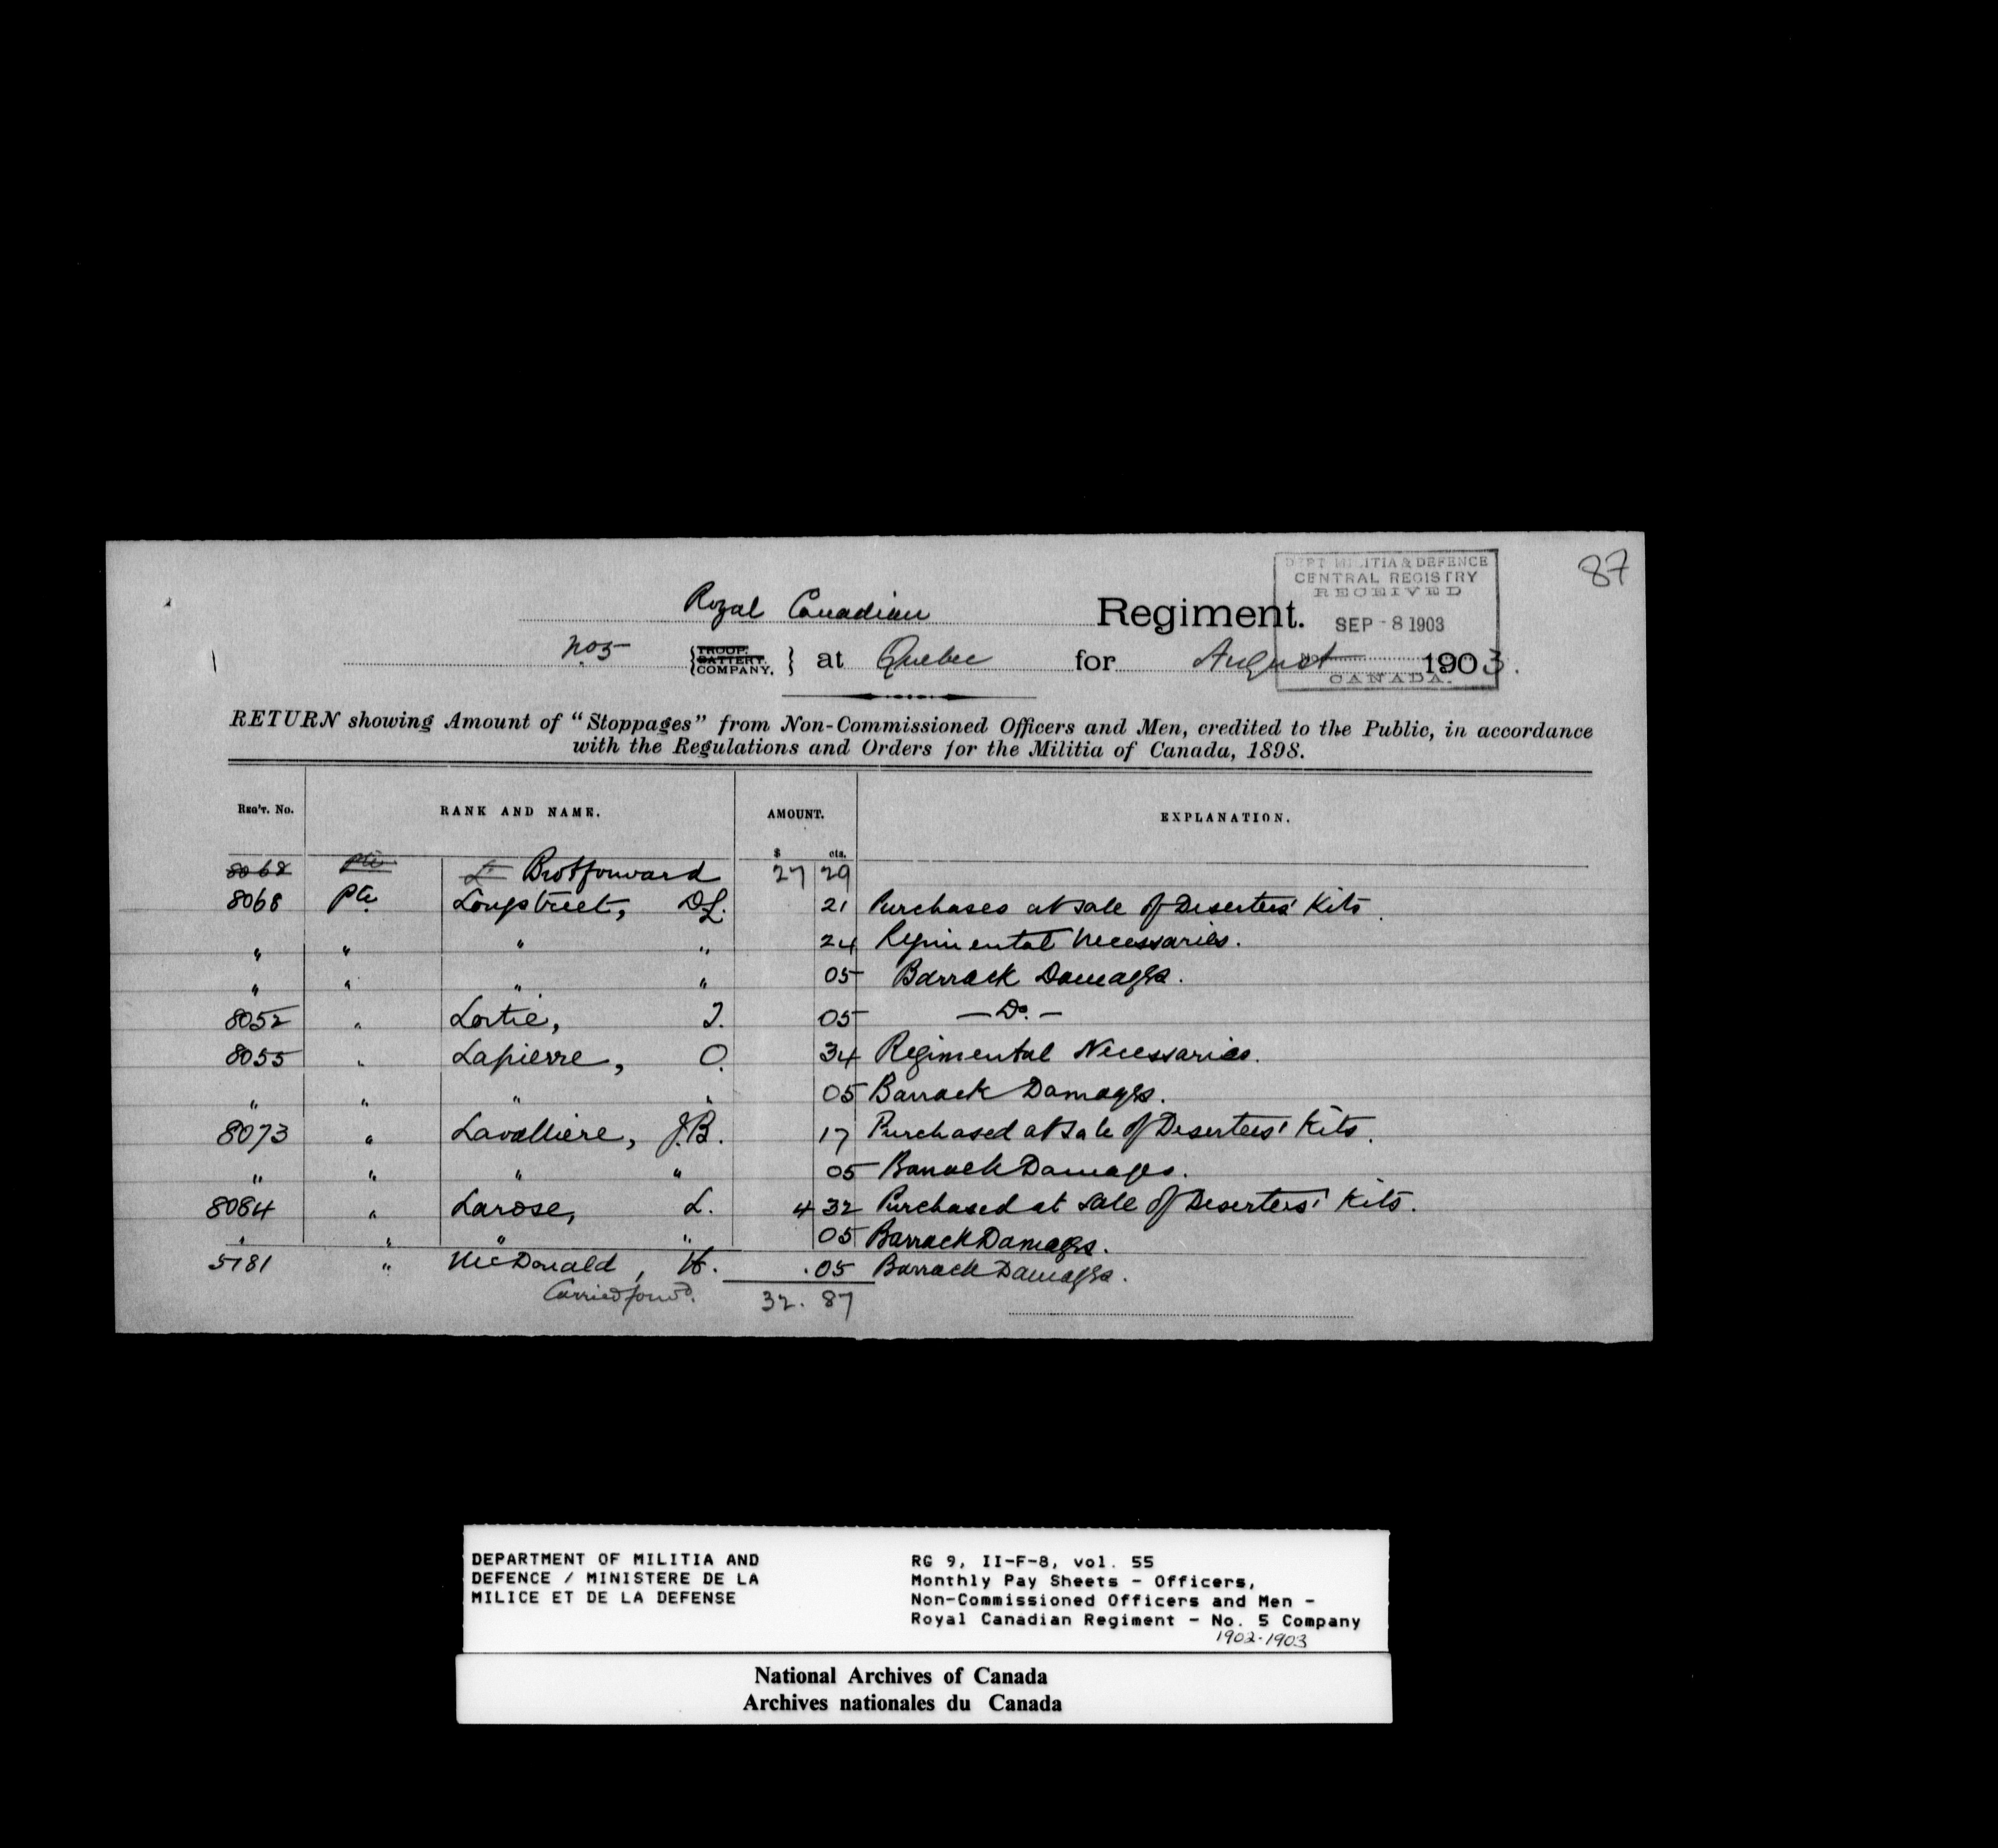 87
DEPT MILITIA & DEFENCE
CENTRAL REGISTRY
RECEIVED
SEP -8 1903
CANADA.
Royal Canadian Regiment.
No 5 {TROOP. BATTERY. COMPANY.} at Quebec for August 1903.
RETURN showing Amount of "Stoppages" from Non-Commissioned Officers and Men, credited to the Public, in accordance
with the Regulations and Orders for the Militia of Canada, 1898.
REG'T. No. RANK AND NAME. AMOUNT. EXPLANATION.
$ cts.
8068 Pte L Brot forward 27 29
8068 Pte Longstreet, D.L. 21 Purchases at sale of Deserters' Kits.
" " " " 24 Regimental Necessaries.
" " " " 05 Barrack Damages.
8052 " Lortie, J. 05 — Do. —
8055 " Lapierre, O. 34 Regimental Necessaries.
" " " " 05 Barrack Damages.
8073 " Lavalliere, J.B. 17 Purchased at Sale of Deserters' Kits.
" " " " 05 Barrack Damages.
8084 " Larose, L. 4 32 Purchased at Sale of Deserters' Kits.
" " " " 05 Barrack Damages.
5181 " McDonald, H. .05 Barrack Damages.
Carried forwd. 32. 87
DEPARTMENT OF MILITIA AND
DEFENCE / MINISTERE DE LA
MILICE ET DE LA DEFENSE
RG 9, II-F-8, vol. 55
Monthly Pay Sheets - Officers,
Non-Commissioned Officers and Men -
Royal Canadian Regiment - No. 5 Company
1902-1903
National Archives of Canada
Archives nationales du Canada